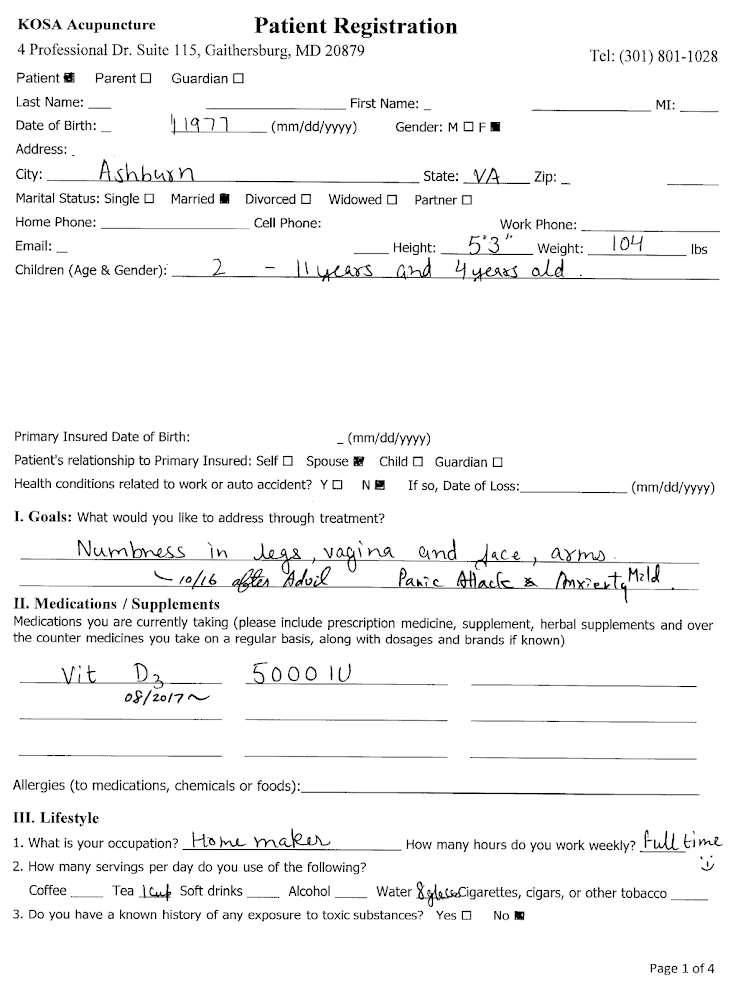 KOSA Acupuncture Patient Registration
4 Professional Dr. Suite 115, Gaithersburg, MD 20879 Tel: (301) 801-1028
Patient ☒ Parent ☐ Guardian ☐
Last Name: ___ ___ First Name: _ ___ MI: ___
Date of Birth: _ 1977 (mm/dd/yyyy) Gender: M ☐ F ☒
Address:
City: Ashburn State: VA Zip: _
Marital Status: Single ☐ Married ☒ Divorced ☐ Widowed ☐ Partner ☐
Home Phone: ___ Cell Phone: Work Phone: ___
Email: _ Height: 5'3" Weight: 104 lbs
Children (Age & Gender): 2 - 11 years and 4 years old.
Primary Insured Date of Birth: _ (mm/dd/yyyy)
Patient's relationship to Primary Insured: Self ☐ Spouse ☒ Child ☐ Guardian ☐
Health conditions related to work or auto accident? Y ☐ N ☒ If so, Date of Loss: ___ (mm/dd/yyyy)
I. Goals: What would you like to address through treatment?
Numbness in legs, vagina and face, arms.
10/16 after Advil Panic Attack & Anxierty Mild.
II. Medications / Supplements
Medications you are currently taking (please include prescription medicine, supplement, herbal supplements and over
the counter medicines you take on a regular basis, along with dosages and brands if known)
Vit D3 5000 IU
08/2017~
Allergies (to medications, chemicals or foods): ___
III. Lifestyle
1. What is your occupation? Home maker How many hours do you work weekly? full time
2. How many servings per day do you use of the following?
Coffee ___ Tea 1 cup Soft drinks ___ Alcohol ___ Water 8 glasses Cigarettes, cigars, or other tobacco ___
3. Do you have a known history of any exposure to toxic substances? Yes ☐ No ☒
Page 1 of 4